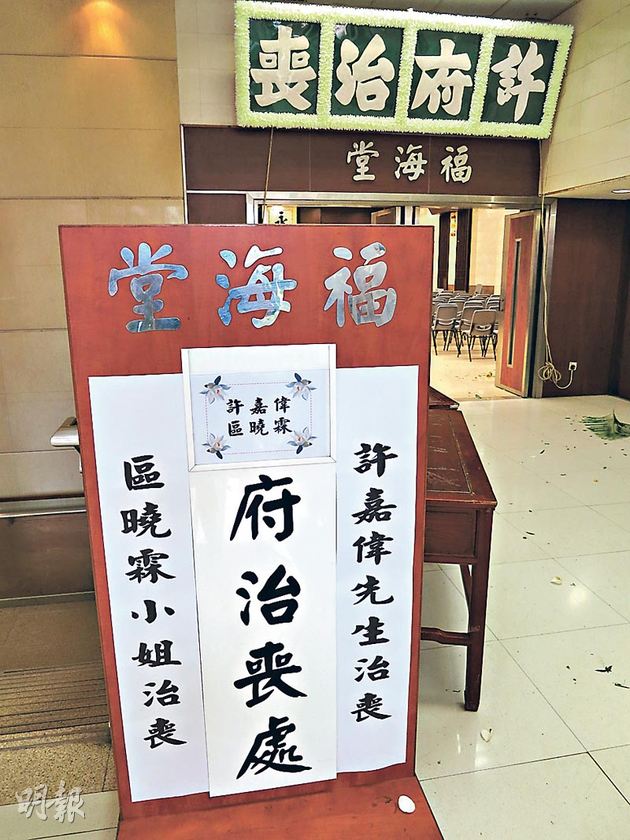 許府治喪
福海堂
福海堂
許嘉偉
區曉霖
府治喪處
許嘉偉先生治喪
區曉霖小姐治喪
永
明報